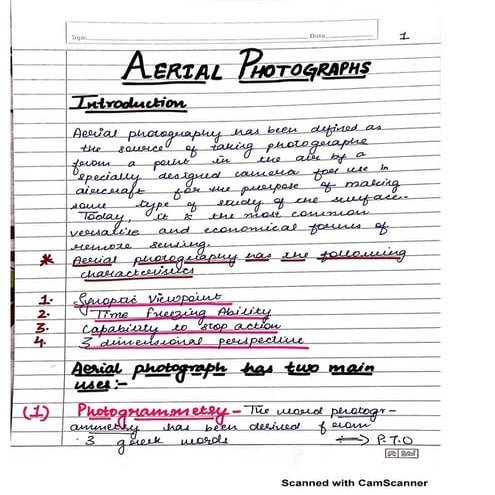 Topic Date
1
AERIAL PHOTOGRAPHS
Introduction
Aerial photography has been defined as
the source of taking photographs
from a point in the air by a
specially designed camera for use in
aircraft for the purpose of making
some type of study of the surface.
Today, it is the most common
versatile and economical forms of
remote sensing.
* Aerial photography has the following
characteristics
1. Synoptic Viewpoint
2. Time Freezing Ability
3. Capability to stop action
4. 3 dimensional perspective
Aerial photograph has two main
uses:-
(1) Photogrammetry - The word photogr-
ammetry has been derived from
3 greek words ⇒ P.T.O
Scanned with CamScanner